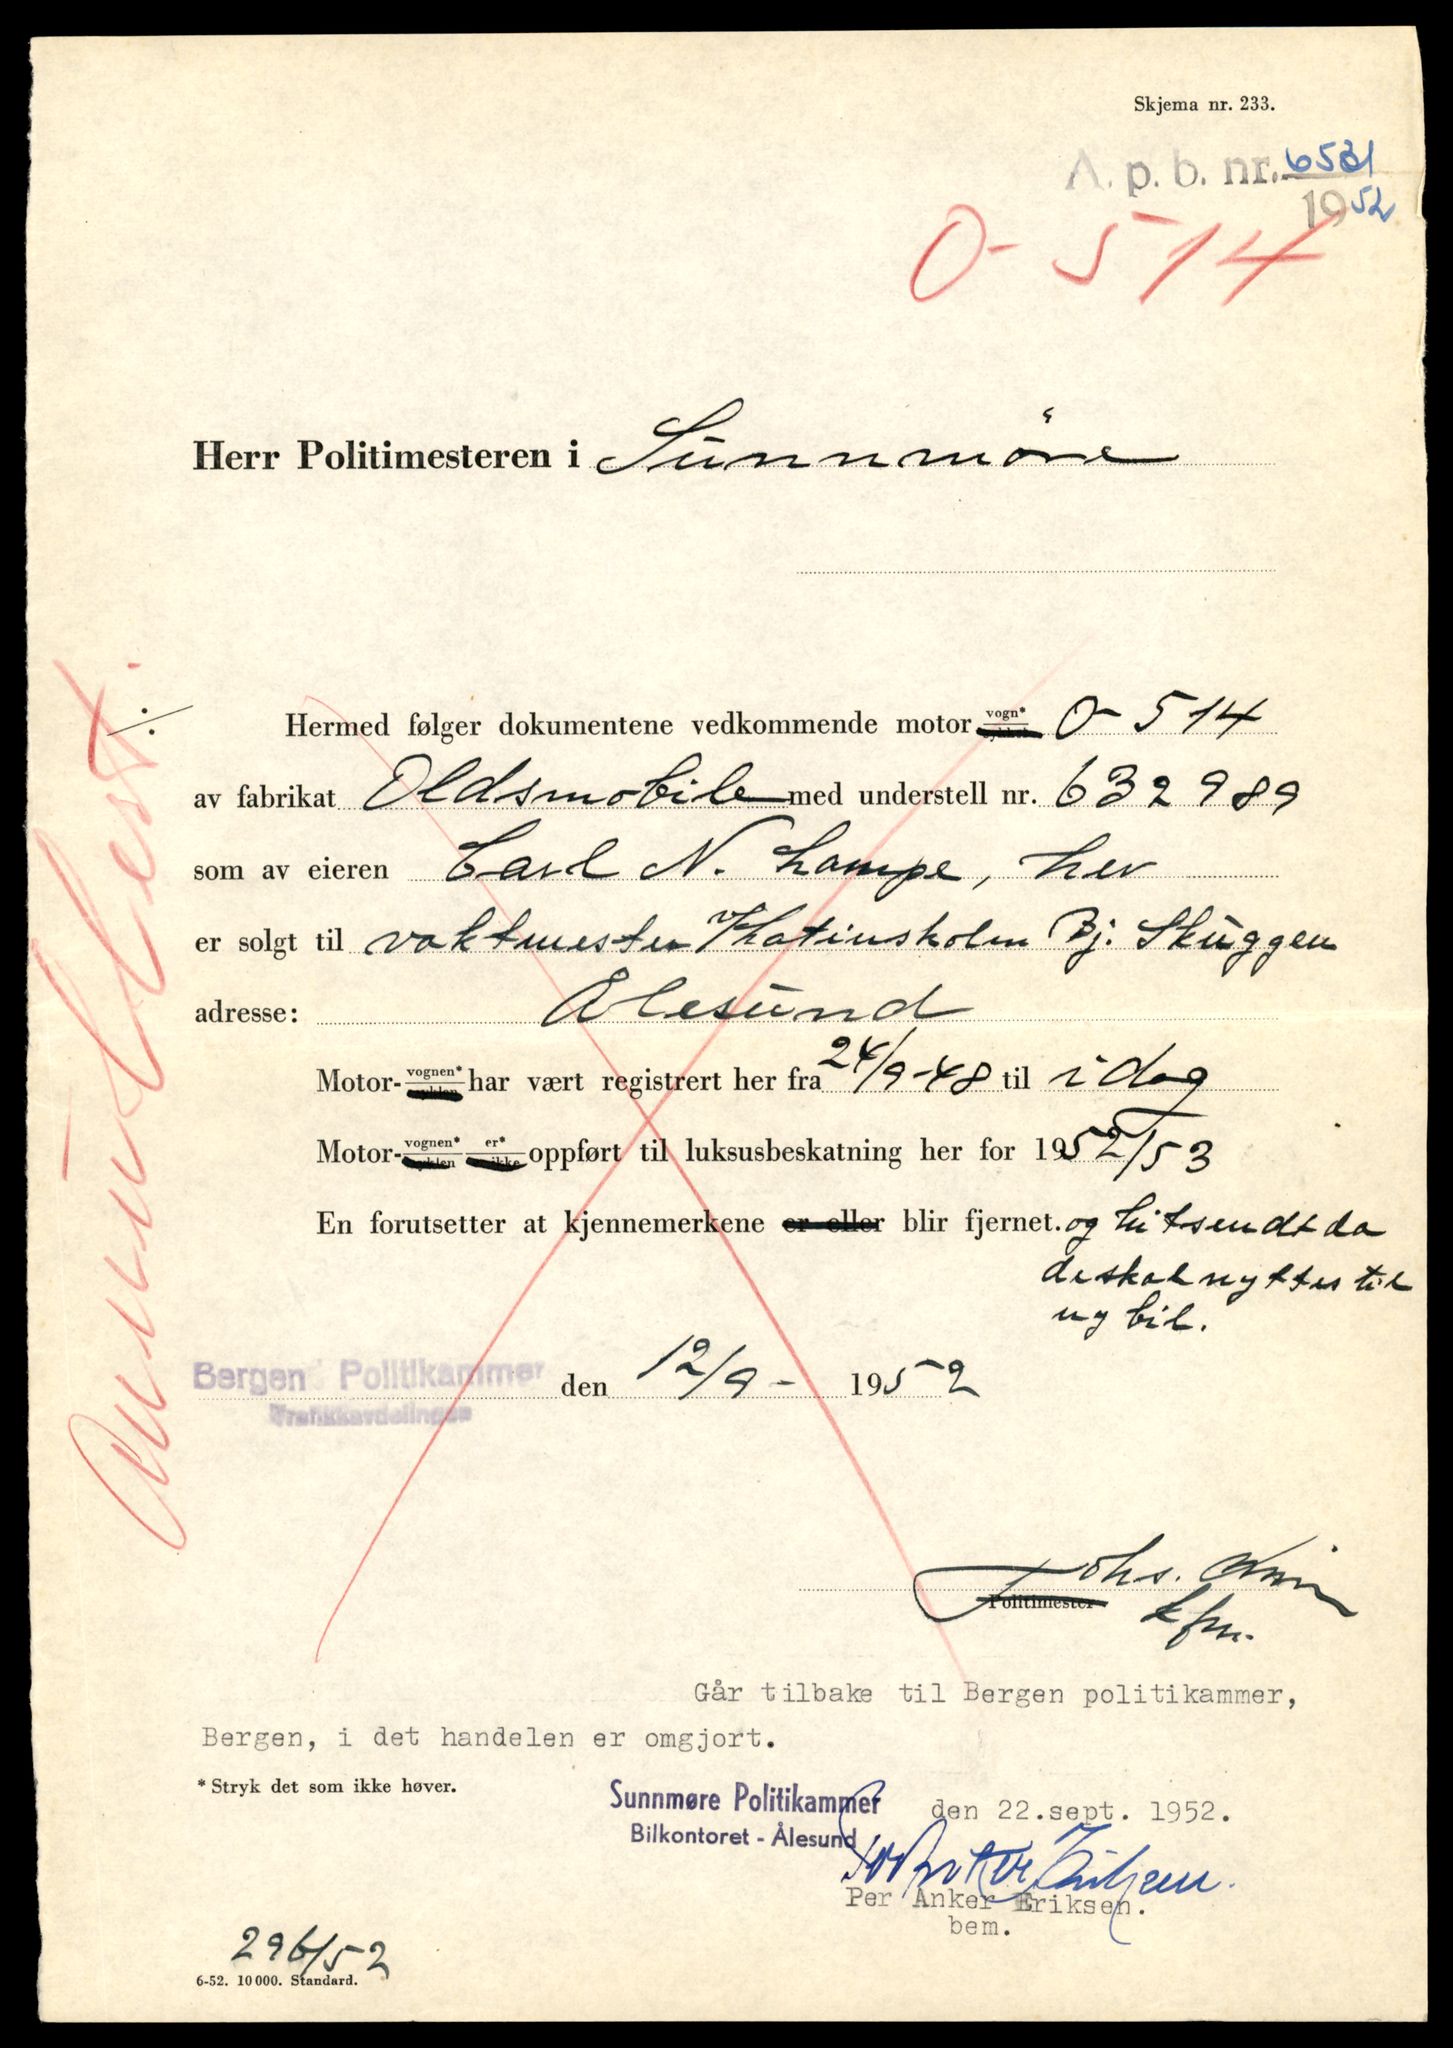 Skjema nr. 233.
A. p. b. nr. 6531
1952
O- 514
Herr Politimesteren i Sunnmöre
Hermed følger dokumentene vedkommende motor vogn* O- 514
av fabrikat Oldsmobile med understell nr. 632989
som av eieren Carl N. Lampe, her
er solgt til vaktmester Bj. Skuggen
adresse: Ålesund
Motor- vognen* har vært registrert her fra 24/9-48 til i dag
Motor- vognen* er* oppført til luksusbeskatning her for 1952/53
En forutsetter at kjennemerkene er eller blir fjernet. og hitsendt da
de skal nyttes til
ny bil.
Bergen Politikammer den 12/9- 1952
Trafikkavdelingen
Annullert.
Johs.
Politimester
kfm.
Går tilbake til Bergen politikammer,
Bergen, i det handelen er omgjort.
* Stryk det som ikke høver.
Sunnmøre Politikammer den 22.sept. 1952.
Bilkontoret - Ålesund
Per Anker Eriksen.
bem.
296/52
6-52. 10 000. Standard.